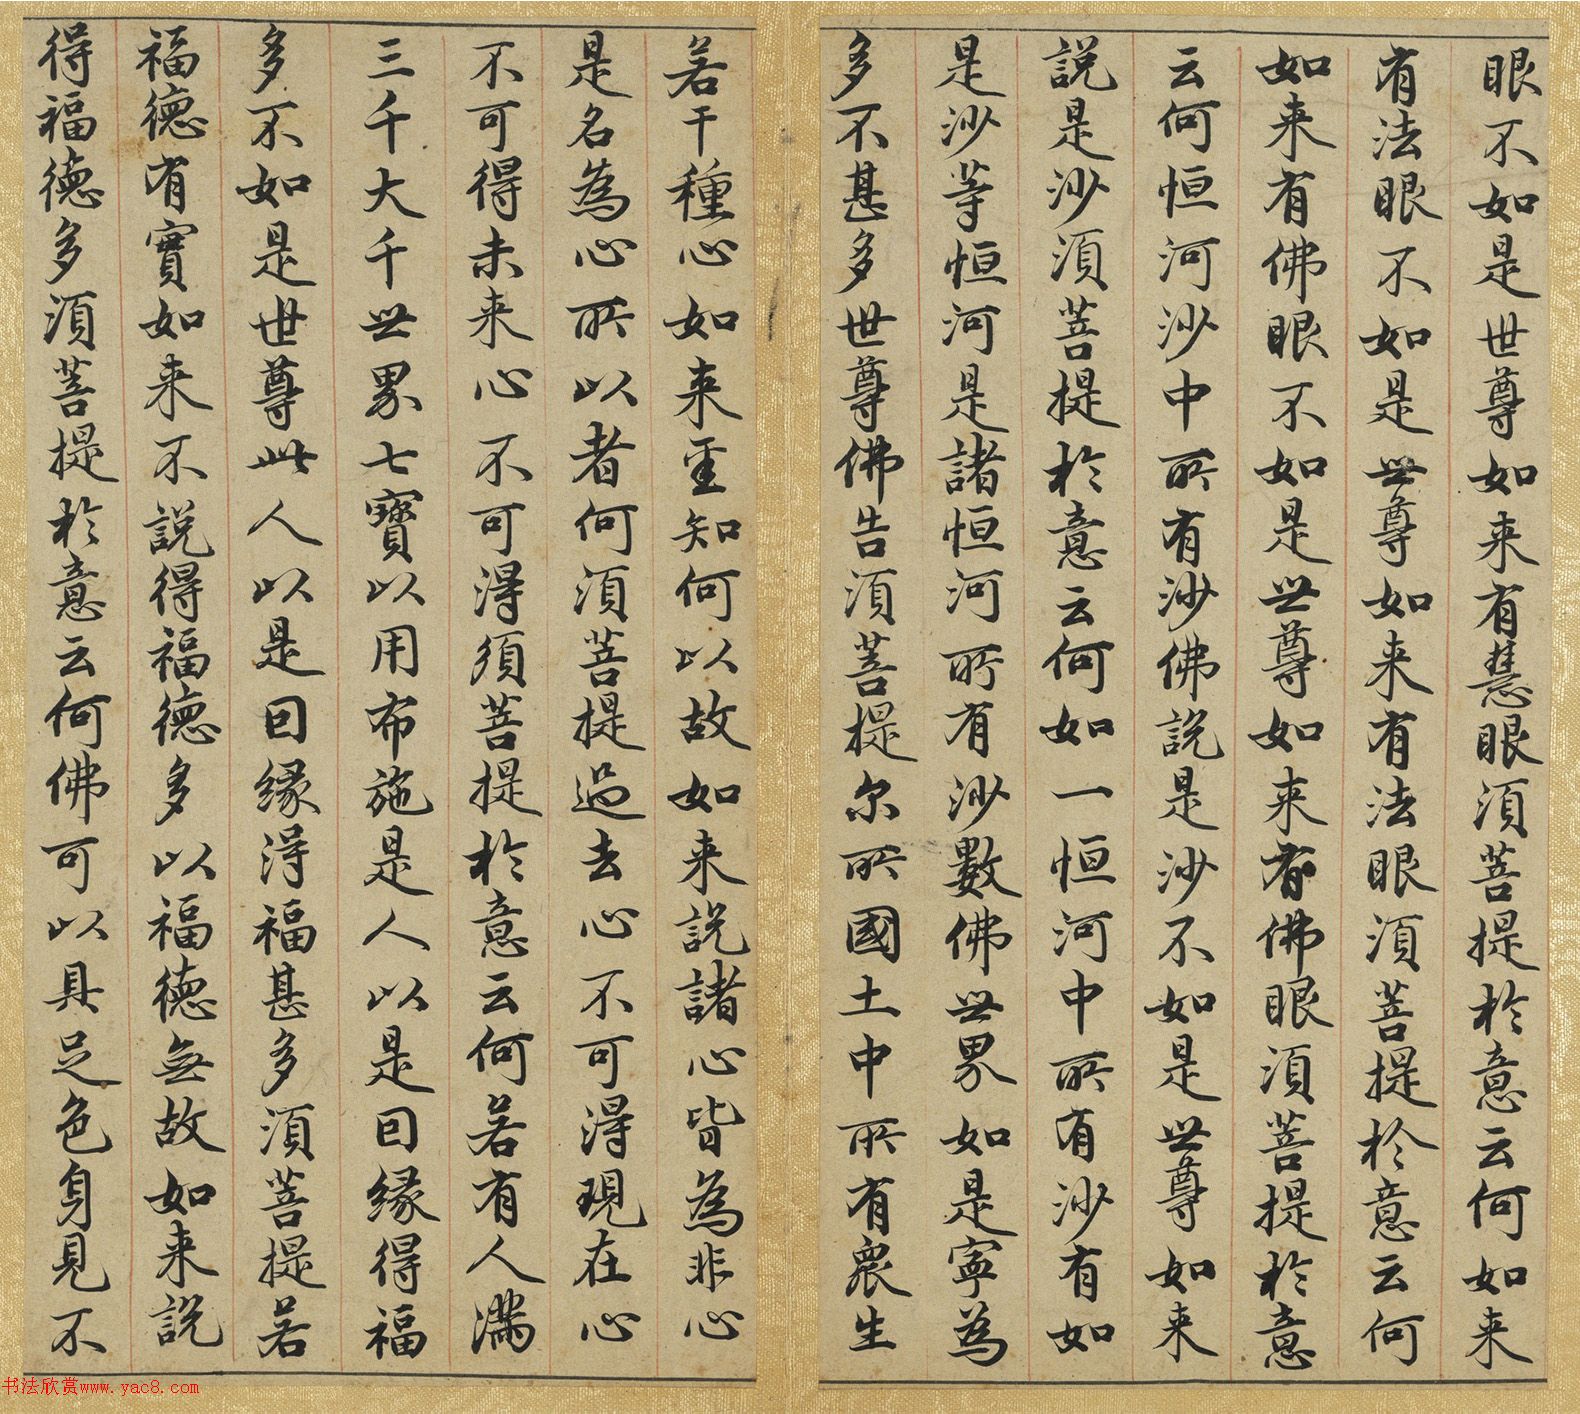 眼不如是世尊如来有慧眼須菩提於意云何如来
有法眼不如是世尊如来有法眼須菩提於意云何
如来有佛眼不如是世尊如来有佛眼須菩提於意
云何恒河沙中所有沙佛說是沙不如是世尊如来
說是沙須菩提於意云何如一恒河中所有沙有如
是沙等恒河是諸恒河所有沙數佛世界如是寧為
多不甚多世尊佛告須菩提尔所國土中所有衆生
若干種心如来悉知何以故如来說諸心皆為非心
是名為心所以者何須菩提過去心不可得現在心
不可得未来心不可得須菩提於意云何若有人滿
三千大千世界七寶以用布施是人以是因緣得福
多不如是世尊此人以是因緣得福甚多須菩提若
福德有實如来不說得福德多以福德無故如来說
得福德多須菩提於意云何佛可以具足色身見不
书法欣赏www.yac8.com